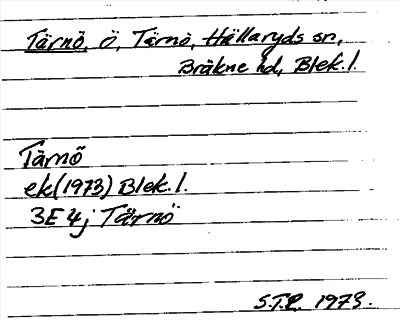 Tärnö, Ö, Tärnö, Hällaryds sn,
Bräkne hd, Blek.l.
Tärnö
ek(1973) Blek.l.
3E 4j Tärnö
S.T.P. 1973.